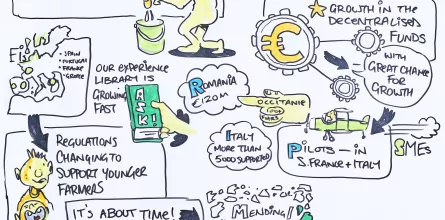 GROWTH IN THE
DECENTRALISED
FUNDS
€
WITH
GREAT CHANCE
FOR
GROWTH
• SPAIN
• PORTUGAL
• FRANCE
• GREECE
OUR EXPERIENCE
LIBRARY IS
GROWING
FAST
ASK!
ROMANIA
€120M
OCCITANIE
ITALY
MORE THAN
5000 SUPPORTED
PILOTS — IN
S. FRANCE + ITALY
SMEs
REGULATIONS
CHANGING TO
SUPPORT YOUNGER
FARMERS
IT'S ABOUT TIME!
MENDING